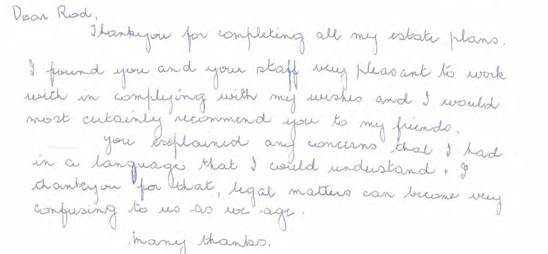 Dear Rod,
Thankyou for completing all my estate plans.
I found you and your staff very pleasant to work
with in complying with my wishes and I would
most certainly recommend you to my friends.
You explained any concerns that I had
in a language that I could understand. I
thankyou for that, legal matters can become very
confusing to us as we age.
Many thanks.